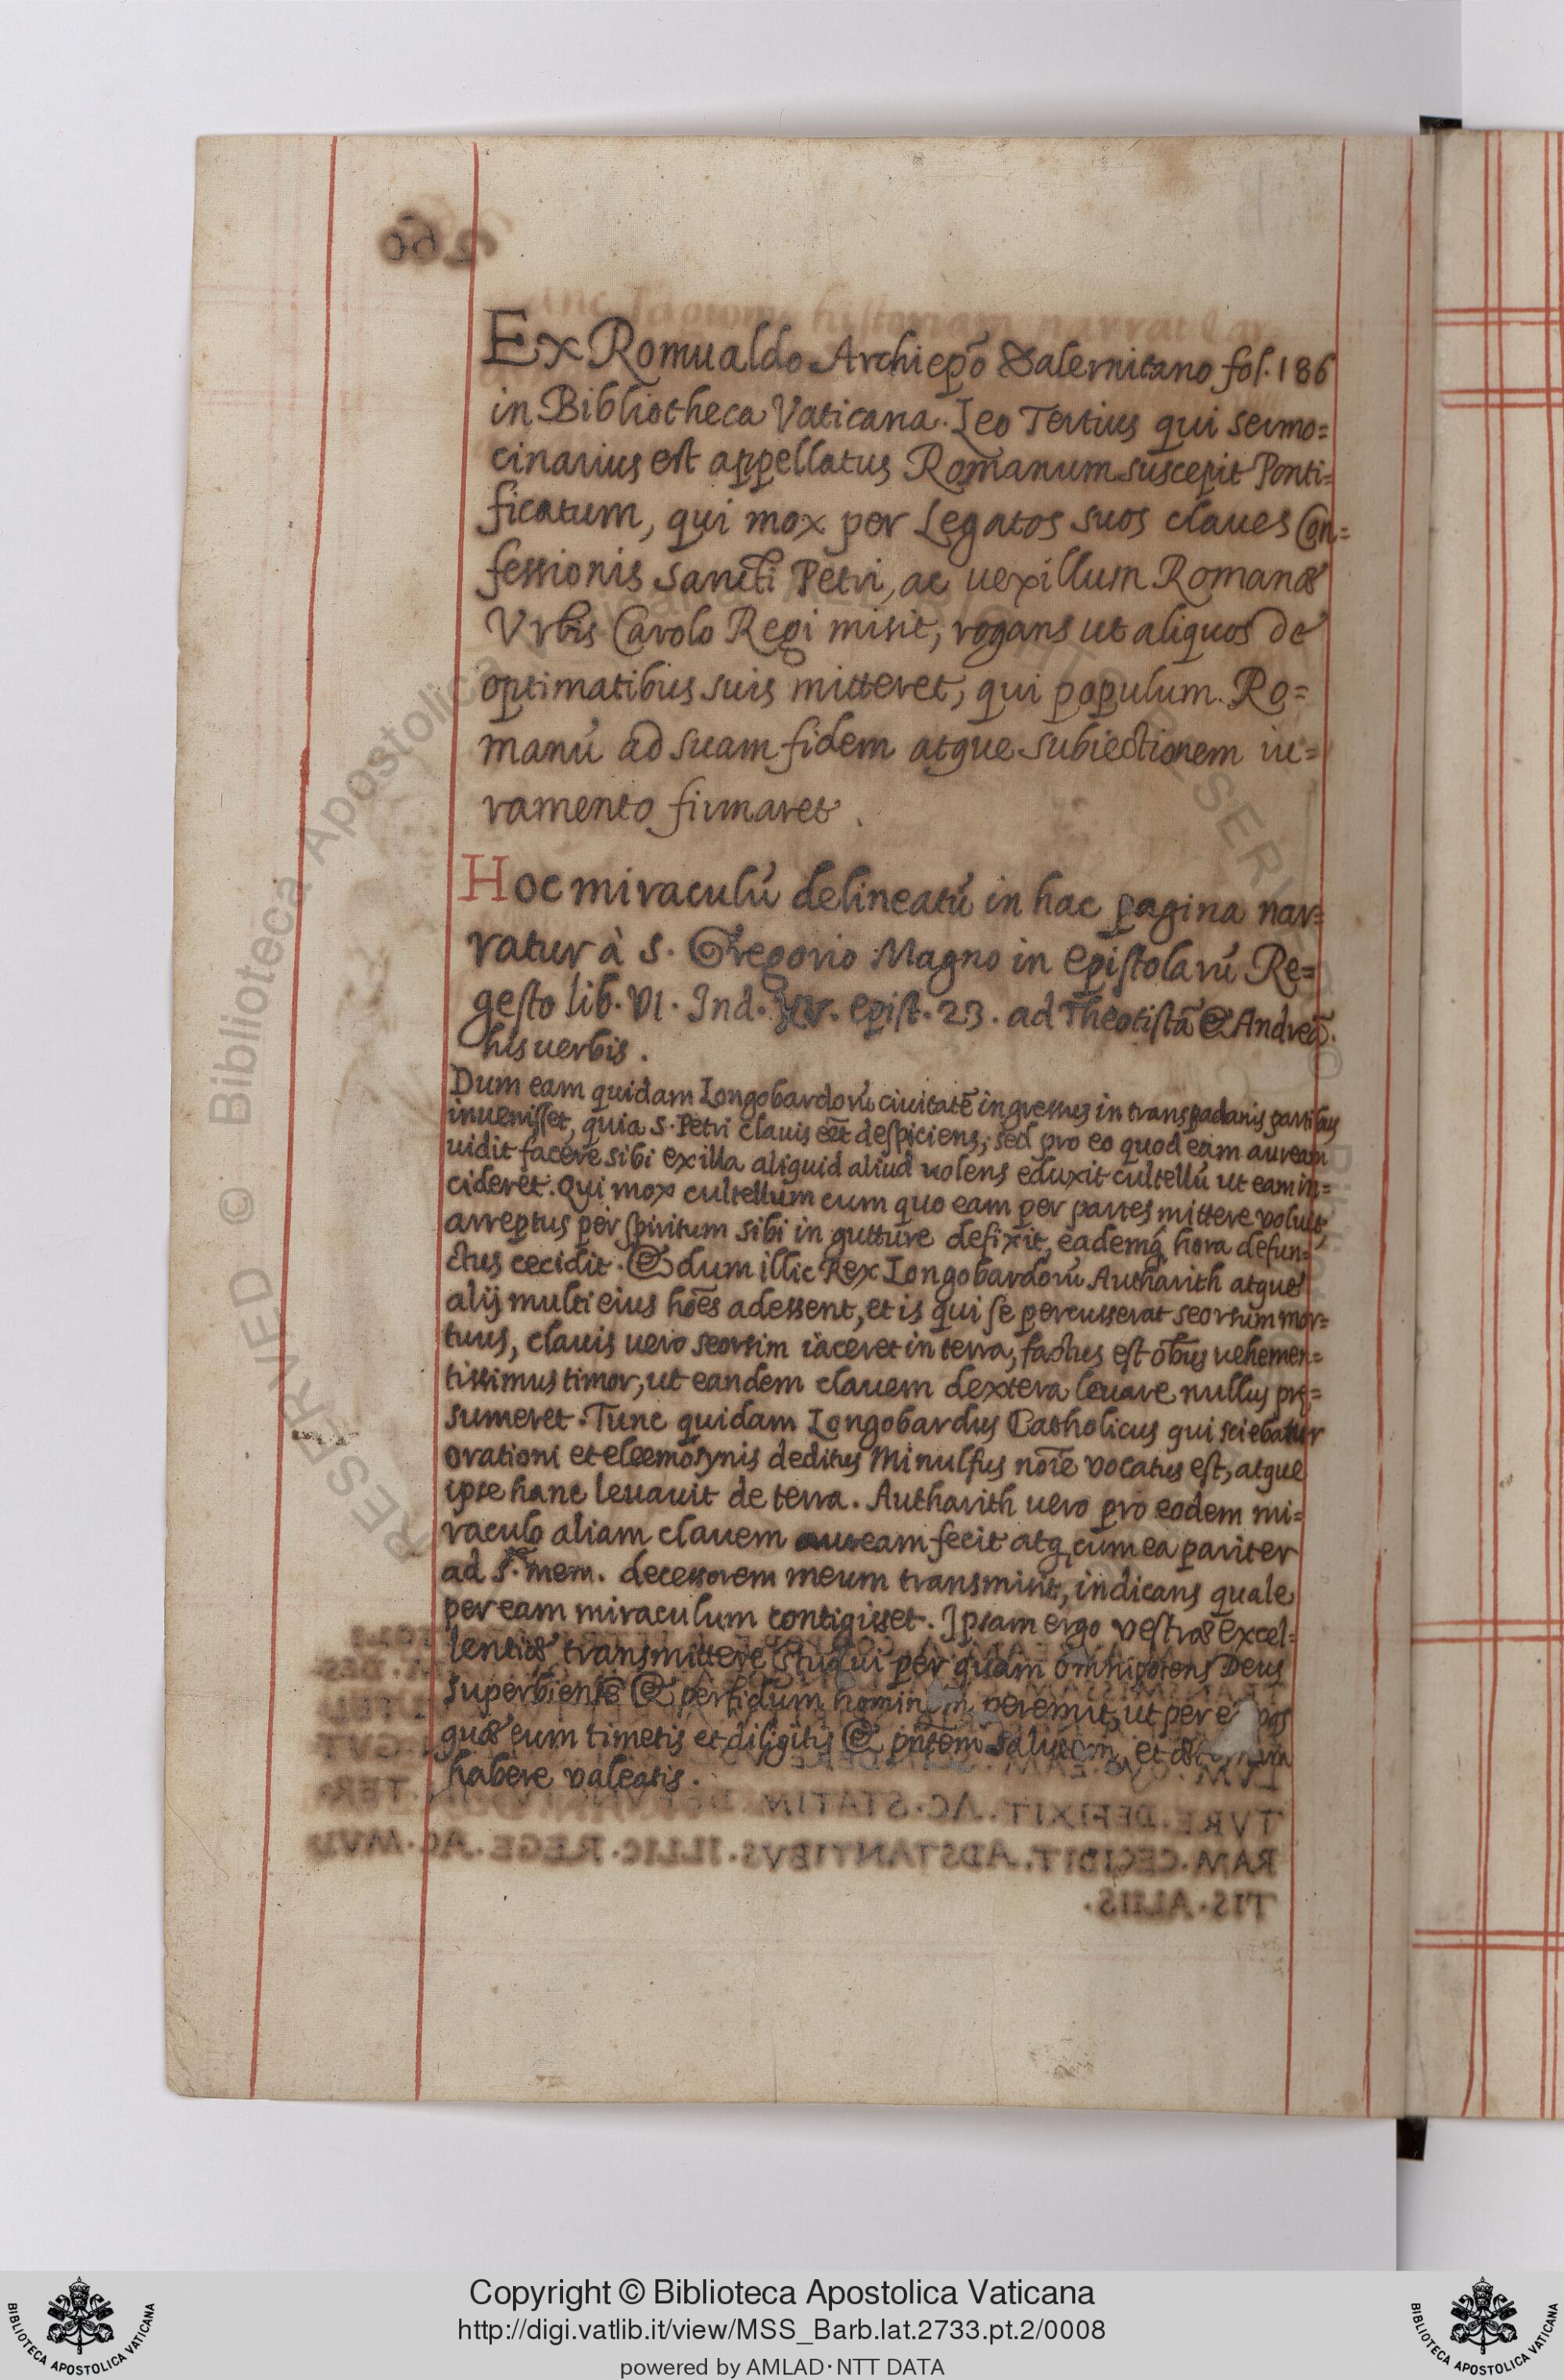 Ex Romualdo Archiepõ Salernitano fol. 186
in Bibliotheca Vaticana. Leo Tertius qui sermo=
cinarius est appellatus Romanum suscepit Ponti=
ficatum, qui mox per Legatos suos claues Con=
fessionis Sancti Petri, ac uexillum Romanæ
Vrbis Carolo Regi misit, rogans ut aliquos de
optimatibus suis mitteret, qui populum Ro=
manũ ad suam fidem atque subiectionem iu=
ramento firmaret.
Hoc miraculũ delineatũ in hac pagina nar=
ratur à S. Gregorio Magno in Epistolarũ Re=
gesto lib. VI. Ind. XV. epist. 23. ad Theotistã & Andreã.
his uerbis.
Dum eam quidam Longobardorũ ciuitatẽ ingressus in transpadanis partibus
inuenisset, quia S. Petri clauis eẽt despiciens, sed pro eo quod eam auream
uidit facere sibi ex illa aliquid aliud uolens eduxit cultellũ ut eam in=
cideret. Qui mox cultellum cum quo eam per partes mittere voluit,
arreptus per spiritum sibi in gutture defixit, eademq́ hora defun=
ctus cecidit. Et dum illic Rex Longobardorũ Autharith atque
alij multi eius hões adessent, et is qui se percusserat seorsum mor=
tuus, clauis uero seorsim iaceret in terra, factus est õbus uehemen=
tissimus timor, ut eandem clauem dextera leuare nullus prę=
sumeret. Tunc quidam Longobardus Catholicus qui sciebatur
orationi et eleemosynis deditus Minulfus noĩe vocatus est, atque
ipse hanc leuauit de terra. Autharith uero pro eodem mi=
raculo aliam clauem auream fecit atq́ cum ea pariter
ad S. mem. decessorem meum transmisit, indicans quale
per eam miraculum contigisset. Ipsam ergo vestræ excel=
lentiæ transmittere studui per quam omnipotens Deus
superbientẽ & perfidum hominem peremit, ut per eam vos
quæ eum timetis et diligitis & pñtem salutem, et æternam
habere valeatis.
Copyright © Biblioteca Apostolica Vaticana
http://digi.vatlib.it/view/MSS_Barb.lat.2733.pt.2/0008
powered by AMLAD·NTT DATA
BIBLIOTECA APOSTOLICA VATICANA
BIBLIOTECA APOSTOLICA VATICANA